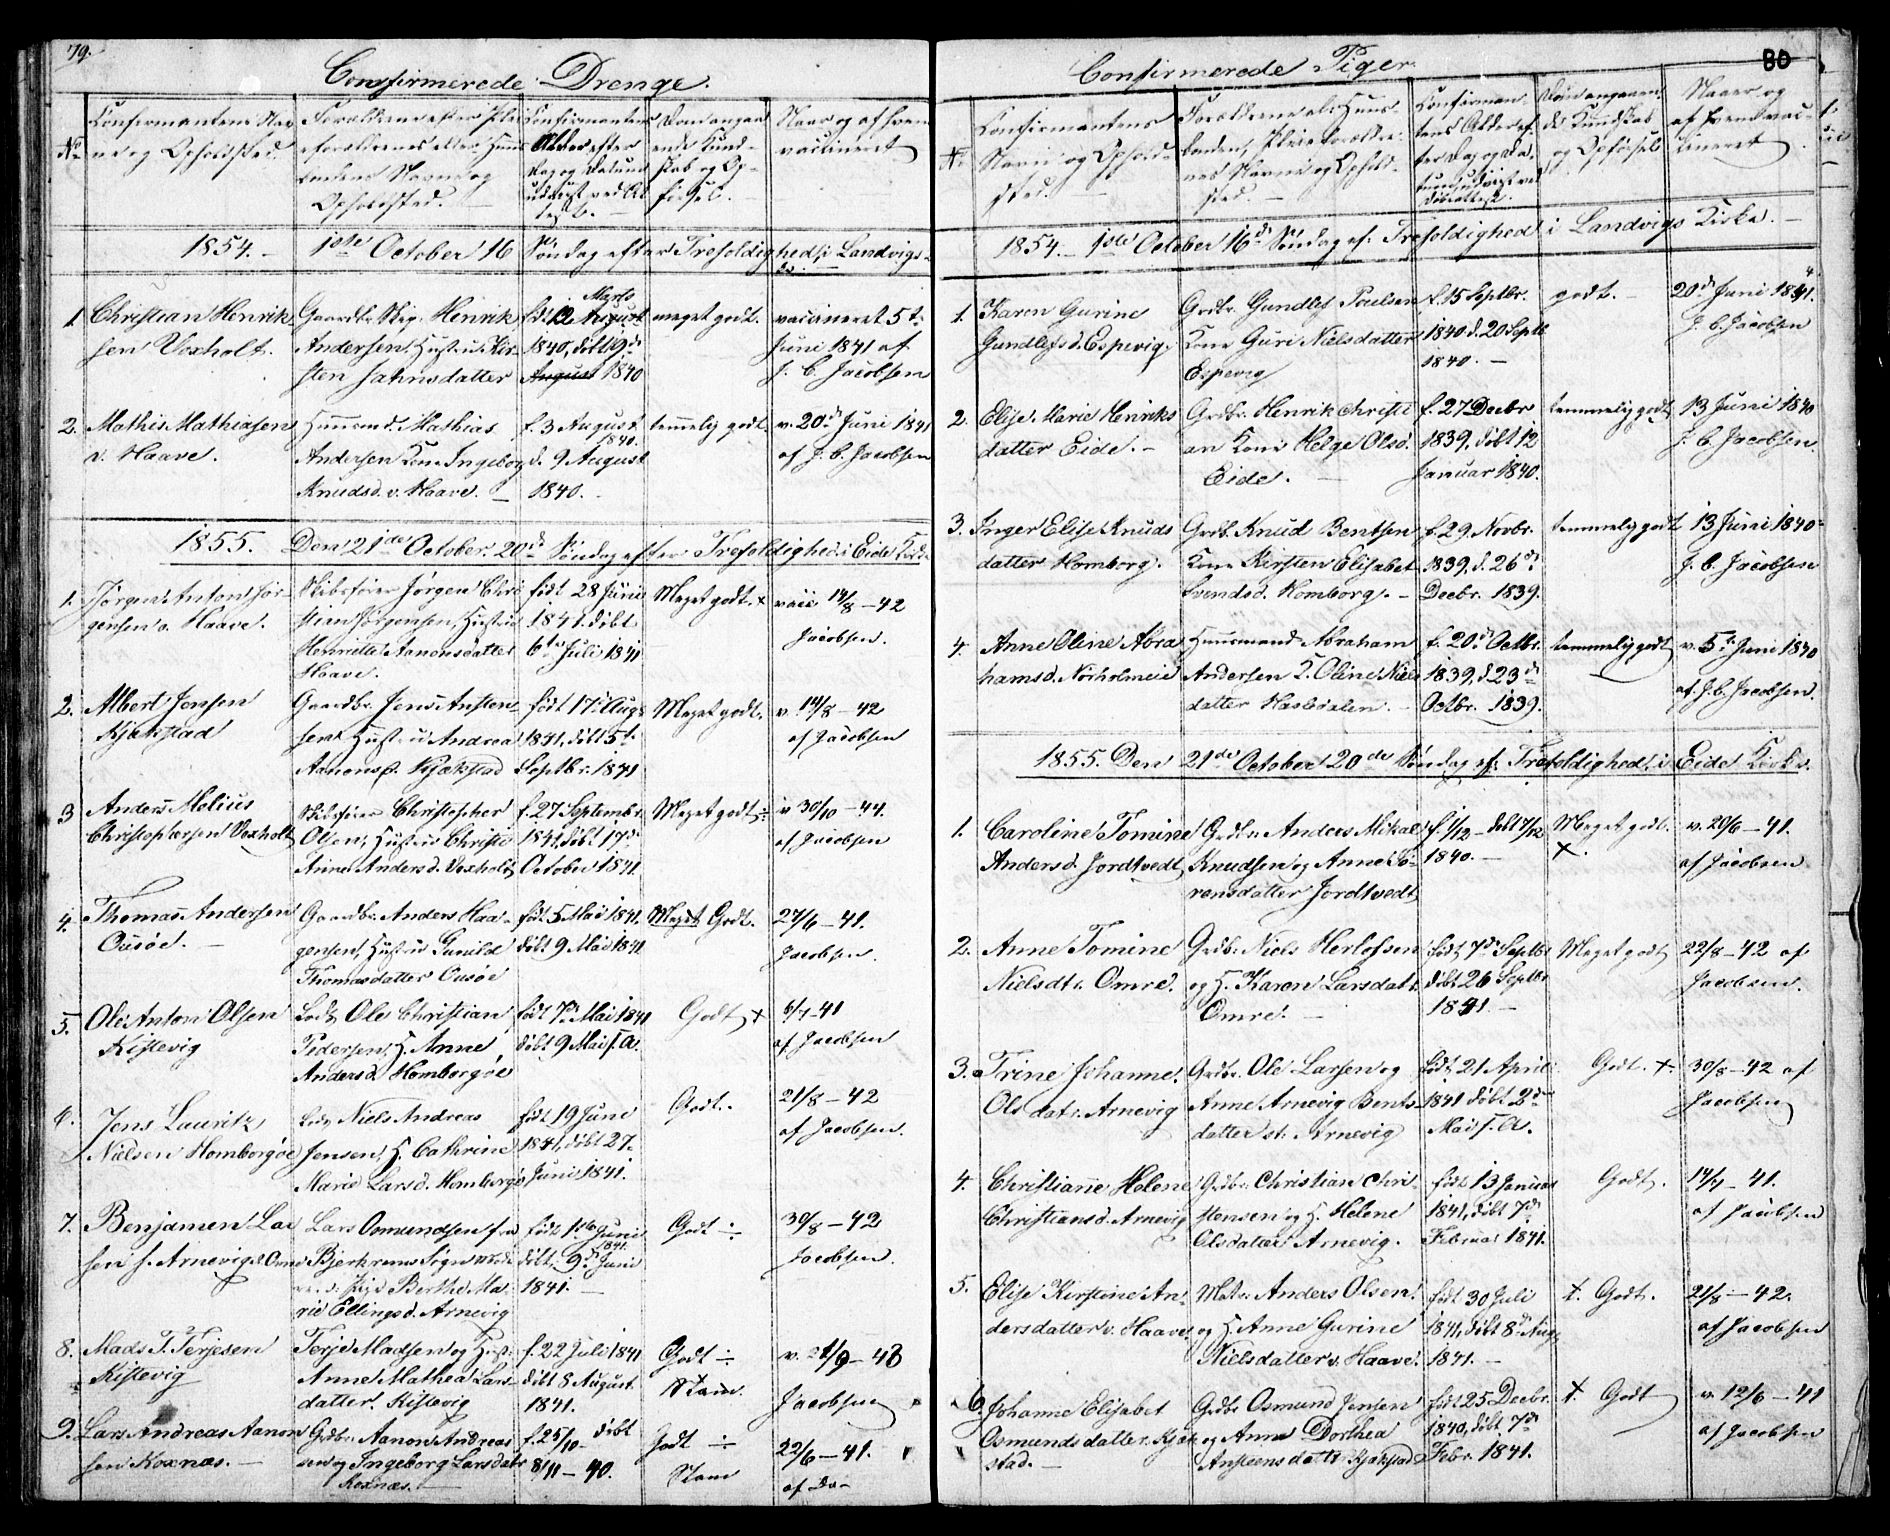 79.
Confirmerede Drenge.
No
Confirmantens Navn og Opholdsted.
Forældrenes eller Pleieforældrenes eller Huusbondens Navne og Opholdsted.
Confirmantens Alder efter Dag og Datum udviist ved Attest.
Dom angaaende Kundskab og Opførsel.
Naar og af hvem vaccineret
1854. - 1ste October 16de Søndag efter Trefoldighed i Landvigs
1. Christian Henriksen Voxholt.
Gaardbr. Henrik Andersen Hustru Kirsten Jahnsdatter
Marts
1840, døbt 19de August 1840
meget godt.
vaccineret 5te Juni 1841 af J. C. Jacobsen
2. Mathis Mathiasen v. Haave.
Huusmd. Mathias Andersen Kone Ingeborg Knudsd. v. Haave. -
f. 3 August 1840. d. 9 August 1840. -
temmelig godt
v. 20de Juni 1841 af J. C. Jacobsen
1855. Den 21de October 20de Søndag efter Trefoldighed i Eide Kirke
1. Jørgen Anton Jørgensen v. Haave.
Skibsfører Jørgen Christian Jørgensen, Hustru Henriette Aanonsdatter Haave.
født 28 Juni 1841. døbt 6te Juli 1841
Meget godt. x
vacc 14/8 - 42 Jacobsen.
2. Albert Jensen Kjækstad
Gaardbr. Jens Anstensen Hustru Andrea Aanonsd. Kjækstad
født 17de Aug. 1841, døbt 5te Septbr. 1841
Meget godt.
v. 14/8 - 42 af Jacobsen
3 Anders Melius Christophersen Voxholt
Skibsfører Christopher Olsen, Hustru Christi Anne Andersd. Voxholt
f. 27 Septembr. 1841, døbt 17de October 1841
Meget godt ÷
v 30/10 - 44. af Jacobsen
4. Thomas Andersen Ousøe. -
Gaardbr. Anders Haagensen, Hustru Gunild Thomasdatter Ousøe
født 5 Mai 1841. døbt 9 Mai 1841
Meget Godt.
27/6 - 41. Jacobsen.
5. Ole Anton Olsen Kistevig
Lods Ole Christian Pedersen, H. Anne Andersd. Homborgøe
født 7de Mai 1841 døbt 9 Mai s. A.
Godt x
6/7 - 41 af Jacobsen
6. Jens Lauritz Nielsen Homborgøe
Lods Niels Andreas Jensen, H. Cathrine Marie Larsd. Homborgø
født 19 Juni 1841, døbt 27. Juni 1841.
Godt.
21/8 - 42 af Jacobsen.
7. Benjamen Larsen f. Arnevig
Lars Osmundsen fra Bjerkrems Sogn Berthe Marie Ellingsd. Arnevig
født 1ste Juni 1841. døbt 9de Juni 1841. -
Godt ÷
30/8 - 42 Jacobsen.
8. Mads T. Terjesen Kistevig
Terje Madsen og Hust: Anne Mathea Larsdatter. Kistevig
f. 22 Juli 1841 døbt 8 August 1841.
Godt ÷ Stam.
v. 21/9 - 43 Jacobsen
9. Lars Andreas Aanonsen Roxnæs. -
Grdbr. Aanon Andreassen og Ingeborg Larsdatr. Roxnæs. -
f. 25/10 - døbt 8/11 - 40.
Godt ÷ Stam
22/6 - 41. af Do -
80
Confirmerede Piger
No
Confirmantens Navn og Opholdsted.
Forældrenes el. Huusbondens, Pleieforældrenes Navne og Opholdsted.
Confirmantens Alder efter Dag og Datum udviist ved Døbeattest.
Dom angaaende Kundskab og Opførsel
Naar og af hvem vaccineret
1854. - 1ste October 16de Søndag ef. Trefoldighed i Landvigs Kirke. -
1. Karen Gurine Gundlefsd. Espevig.
Grdbr. Gundlef Poulsen Kone Guri Nielsdatter Espevig
f. 15 Septbr. 1840 d. 20 Septb. 1840. -
godt. -
20de Juni 1841. J. C. Jacobsen
2. Elise Marie Henriksdatter Eide. -
Grdbr. Henrik Christian Kone Helge Olsd. Eide. -
f. 27 Decbr 1839, døbt 12 Januar 1840.
temmelig godt
13 Juni 1840 J. C. Jacobsen.
3. Inger Elise Knudsdatter Homborg.
Grdb. Knud Bentsen Kone Kirsten Elisabet Svendsd. Homborg. -
f. 29. Novbr. 1839, d. 26de Decbr. 1839.
temmelig godt
13 Juni 1840 J. C. Jacobsen
4. Anne Oline Abrahamsd. Norholmeie
Huusmand Abraham Andersen K. Oline Nielsdatter Hasledalen. -
f. 20de Octbr. 1839, d. 23de Octbr. 1839.
temmelig godt
v. 5te Juni 1840 af J. C. Jacobsen.
1855. Den 21de October 20de Søndag ef. Trefoldighed i Eide Kirke.
1. Caroline Tomine Andersd. Jordtvedt
Grdbr. Anders Mikal Knudsen og Anne Sørensdatter Jordtvedt
f. 1/12 - døbt 7/12 1840. -
Meget godt. x.
v. 20/6 - 41. af Jacobsen
2. Anne Tomine Nielsdtr. Omre.
Grdbr. Niels Herlofsen og H. Karen Larsdatt. Omre. -
født 7de Septbr døbt 26 Septbr 1841. -
Meget godt
22/8 - 42 af Jacobsen.
3. Trine Johanne Olsdatr. Arnevig
Grdbr. Ole Larsen og Anne Arnevig Bentsdatter st. Arnevig
født 21 April 1841 døbt 2de Mai s. A.
Godt. x.
30/8 - 42 af Jacobsen
4. Christiane Helene Christiansd. Arnevig
Grdbr. Christian Christensen og H. Helene Olsdatter Arnevig.
født 13 Januar 1841, døbt 7de Februar 1841.
Godt.
14/7 - 41. af Jacobsen
5. Elise Kirstine Andersdatter v. Haave
Matr. Anders Olsen og H. Anne Gurine Nielsdatter v. Haave.
født 30 Juli 1841, døbt 8de Aug. 1841. -
x. Godt.
21/8 - 42. af Jacobsen
6. Johanne Elisabet Osmundsdatter. Kjækstad. -
Grdbr Osmund Jensen og Anne Dorthea Ansteensdattr Kjækstad
født 25 Decbr. 1840, døbt 7de Febr. 1841.
x Godt
v. 12/6 - 41 af Jacobsen